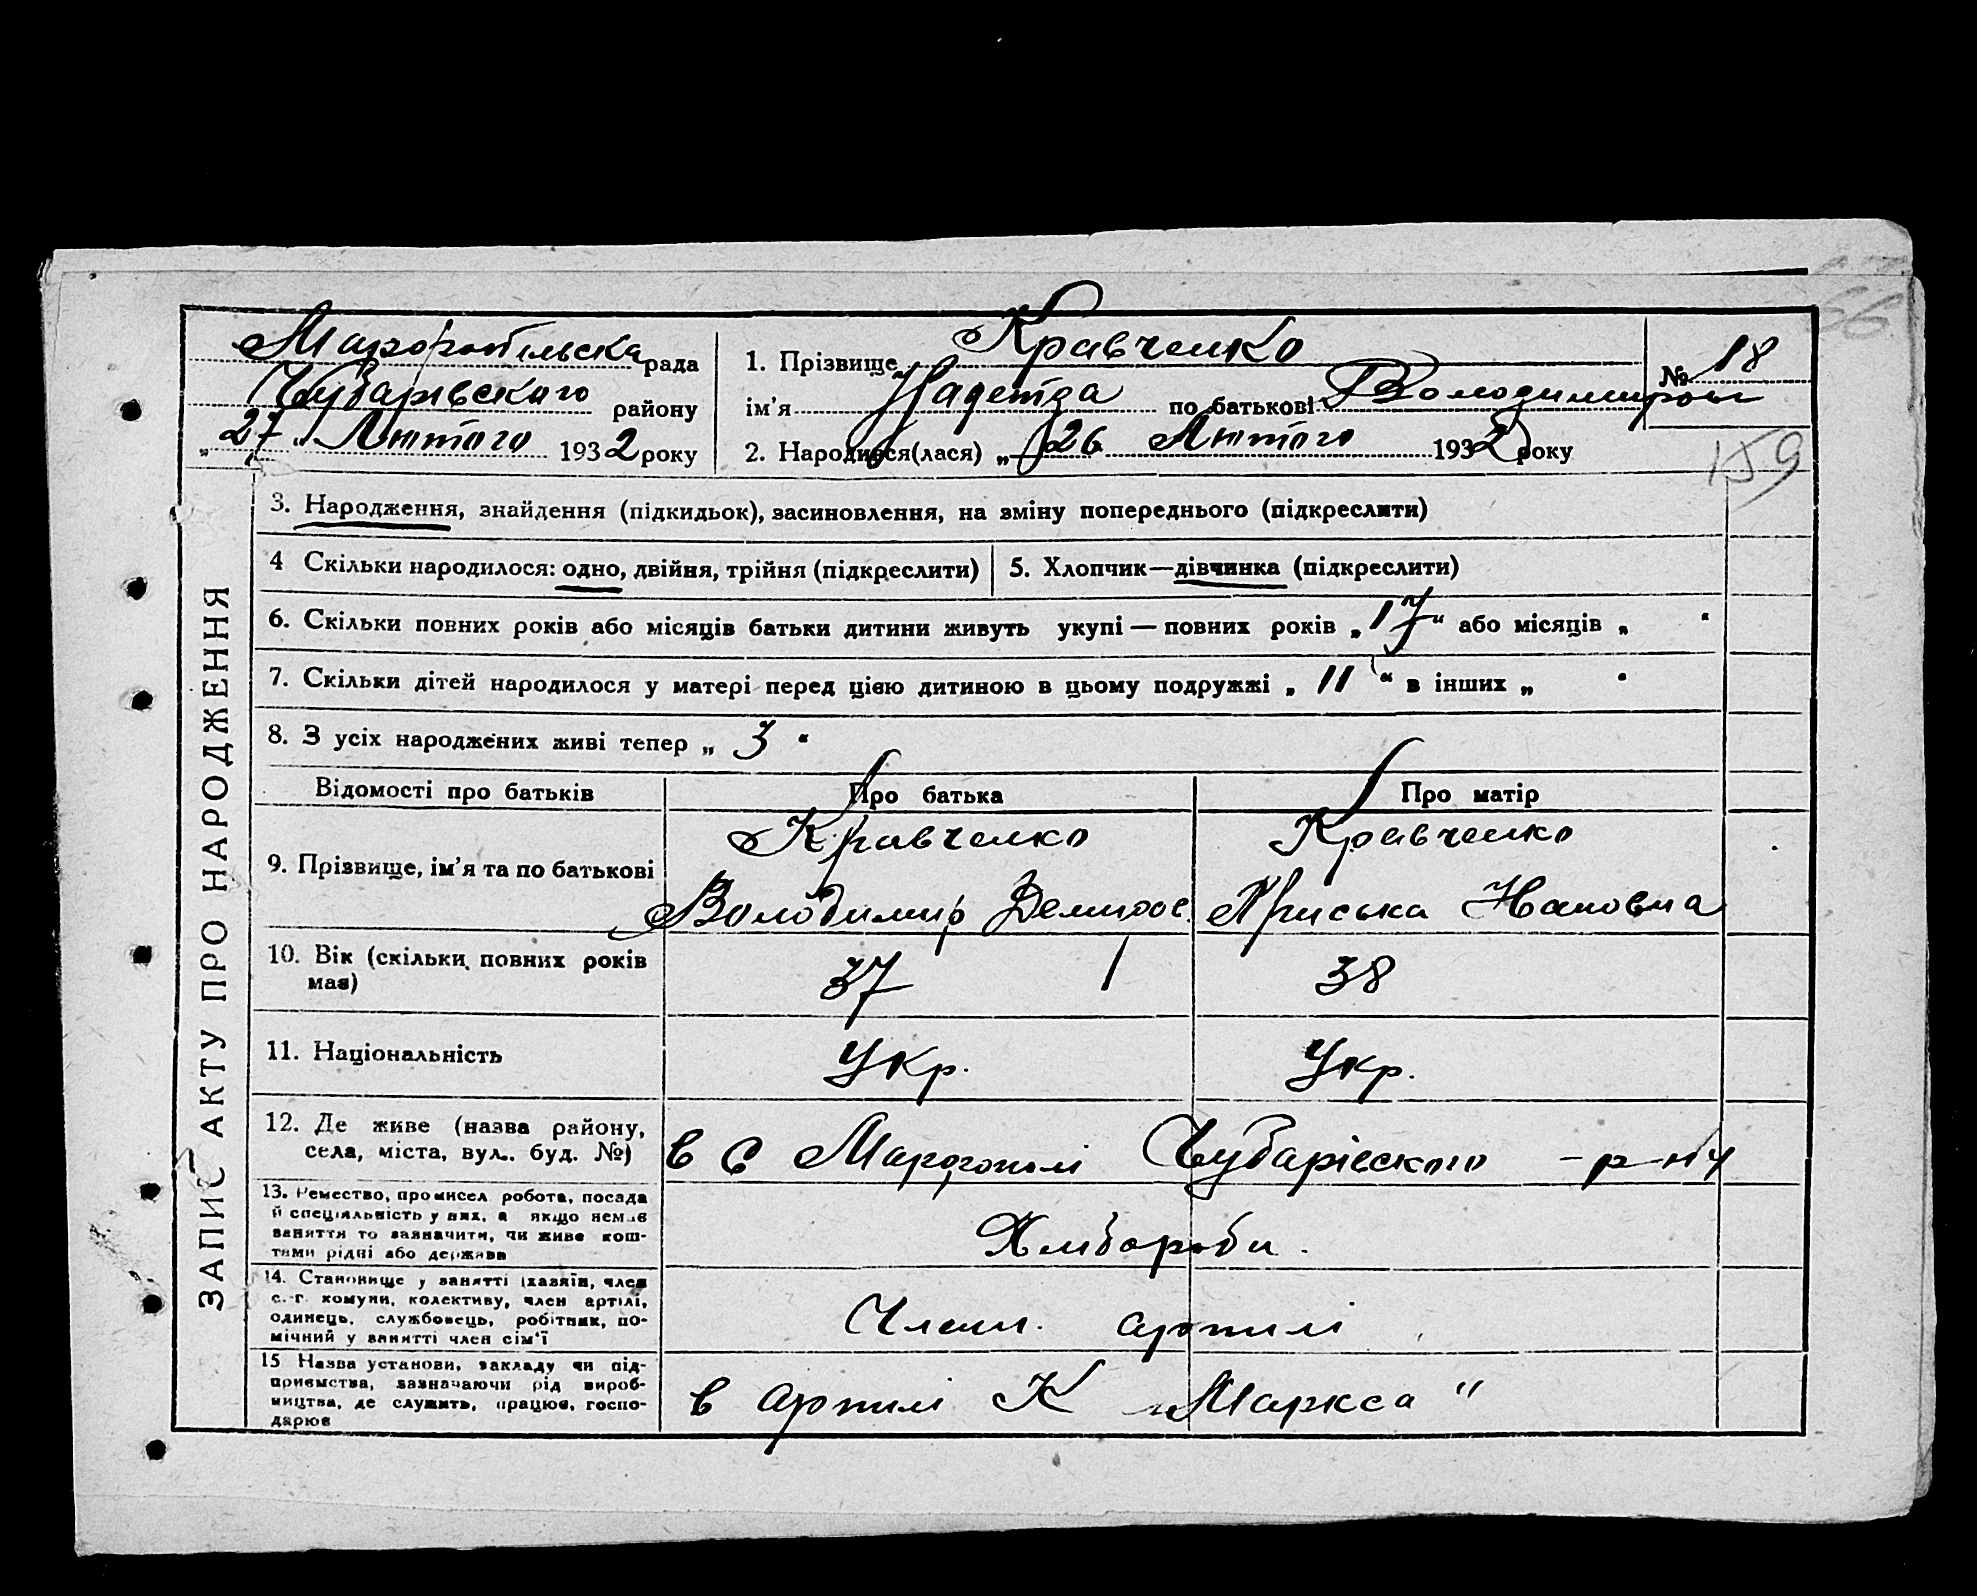 66
Марфопільська рада
Чубарівського району
„27" Лютого 1932 року
1. Прізвище Кравченко
ім'я Надежда по батькові Володимировн
2. Народився(лася) „26 Лютого 1932 року
№ 18
159
ЗАПИС АКТУ ПРО НАРОДЖЕННЯ
3. Народження, знайдення (підкидьок), засиновлення, на зміну попереднього (підкреслити)
4 Скільки народилося: одно, двійня, трійня (підкреслити)
5. Хлопчик—дівчинка (підкреслити)
6. Скільки повних років або місяців батьки дитини живуть укупі — повних років „17" або місяців „ "
7. Скільки дітей народилося у матері перед цією дитиною в цьому подружжі „11" в інших „ "
8. З усіх народжених живі тепер „3"
Відомості про батьків Про батька Про матір
9. Прізвище, ім'я та по батькові
Кравченко
Володимир Демидов.
Кравченко
Приська Ивановна
10. Вік (скільки повних років
має)
37
38
11. Національність
Укр.
Укр.
12. Де живе (назва району,
села, міста, вул. буд. №)
в с Марфополі Чубарівського р-ну
13. Ремество, промисел робота, посада
й спеціяльність у них, а якщо немає
заняття то зазначити, чи живе кош-
тами рідні або держави
Хлібороби.
14. Становище у занятті (хазяїн, член
с.-г. комуни, колективу, член артілі,
одинець, службовець, робітник, по-
мічний у занятті член сім'ї
Члени артилі
15 Назва установи, закладу чи під-
приємства, зазначаючи рід вироб-
ництва, де служить, працює, госпо-
дарює
в артилі К „Маркса"